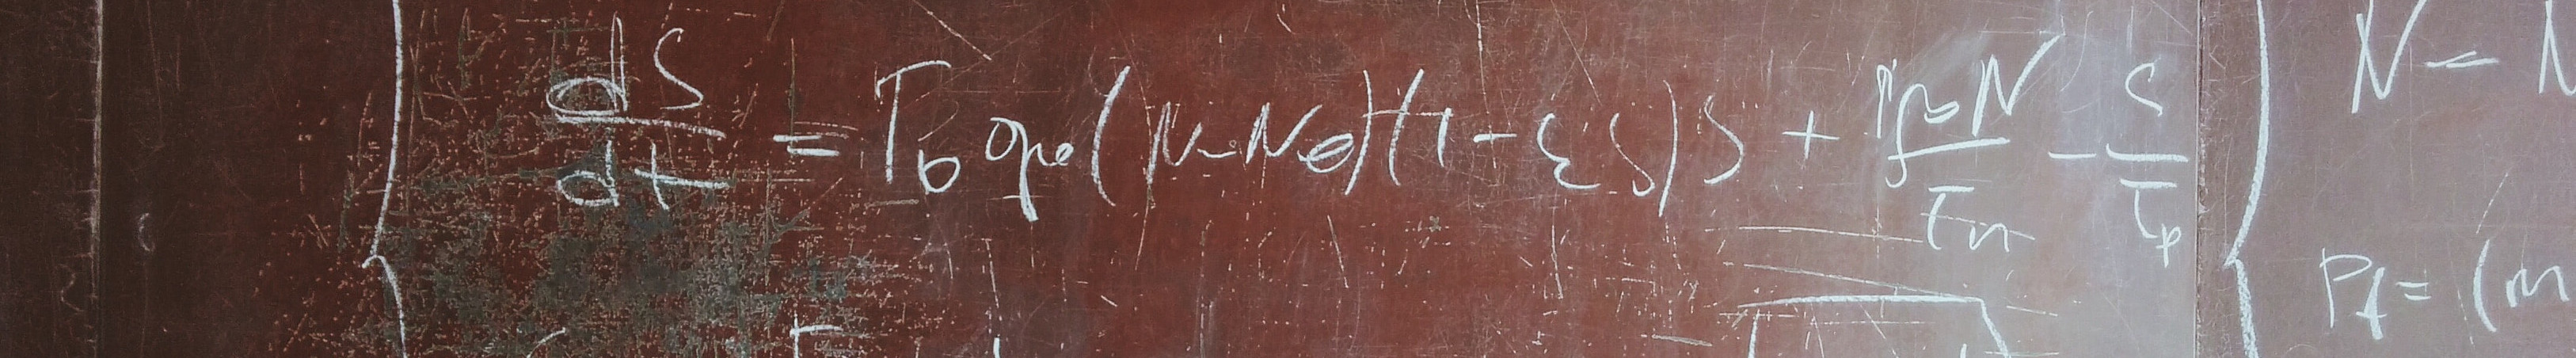 dS/dt = Γ₀ g₀ (N - N₀)(1 - εS)S + βN/τn - S/τp
N =
Pf = (m